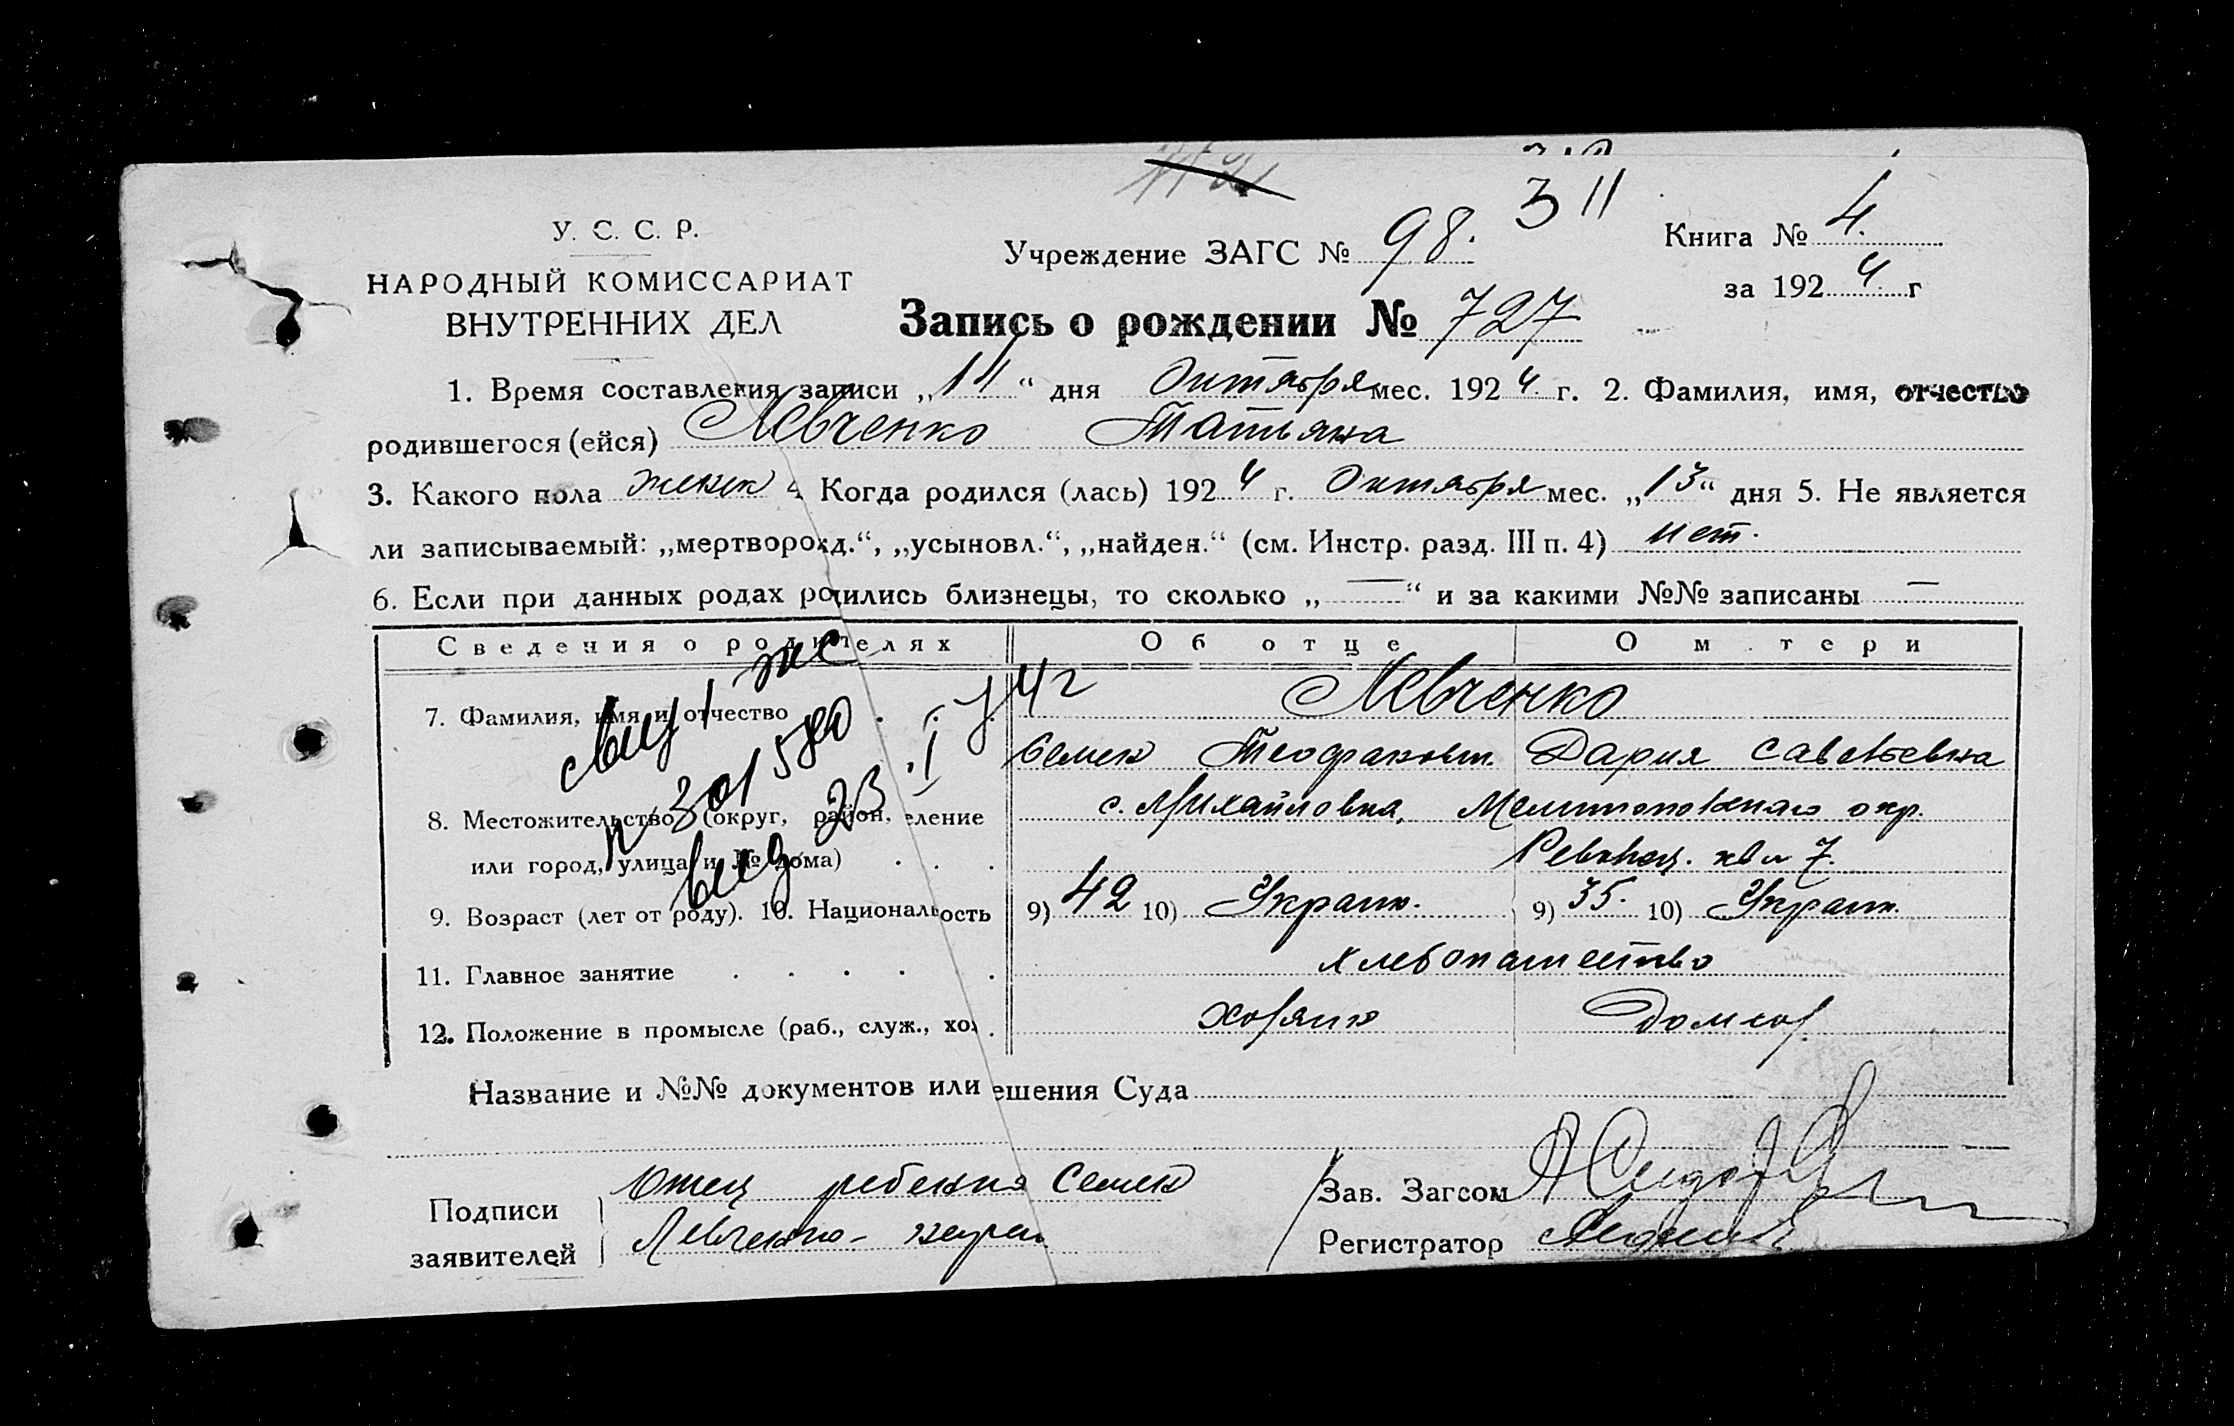 3 11
У. С. С. Р.
Учреждение ЗАГС № 98.
Книга № 4.
НАРОДНЫЙ КОМИССАРИАТ
за 192 4 г
ВНУТРЕННИХ ДЕЛ
Запись о рождении № 727
1. Время составления записи „14“ дня Октября мес. 192 4 г. 2. Фамилия, имя, отчество
родившегося (ейся) Левченко Татьяна
3. Какого пола женск 4 Когда родился (лась) 192 4 г. Октября мес. „13“ дня 5. Не является
ли записываемый: „мертворожд.“, „усыновл.“, „найден.“ (см. Инстр. разд. III п. 4) нет.
6. Если при данных родах родились близнецы, то сколько „—“ и за какими №№ записаны —
Сведения о родителях Об отце О м тери
7. Фамилия, имя и отчество Левченко
Семен Дария Савельевна
8. Местожительство (округ, район, еление с. Михайловка, Мелитопольского окр.
или город, улица и № дома) 7.
9. Возраст (лет от роду). 10. Национальность 9) 42 10) Украин. 9) 35. 10) Украин.
11. Главное занятие хлебопашество
12. Положение в промысле (раб., служ., хоз. хозяин домхоз.
Название и №№ документов или ешения Суда
Подписи заявителей
Отец ребенка Семен
Левченко
Зав. Загсом
Регистратор